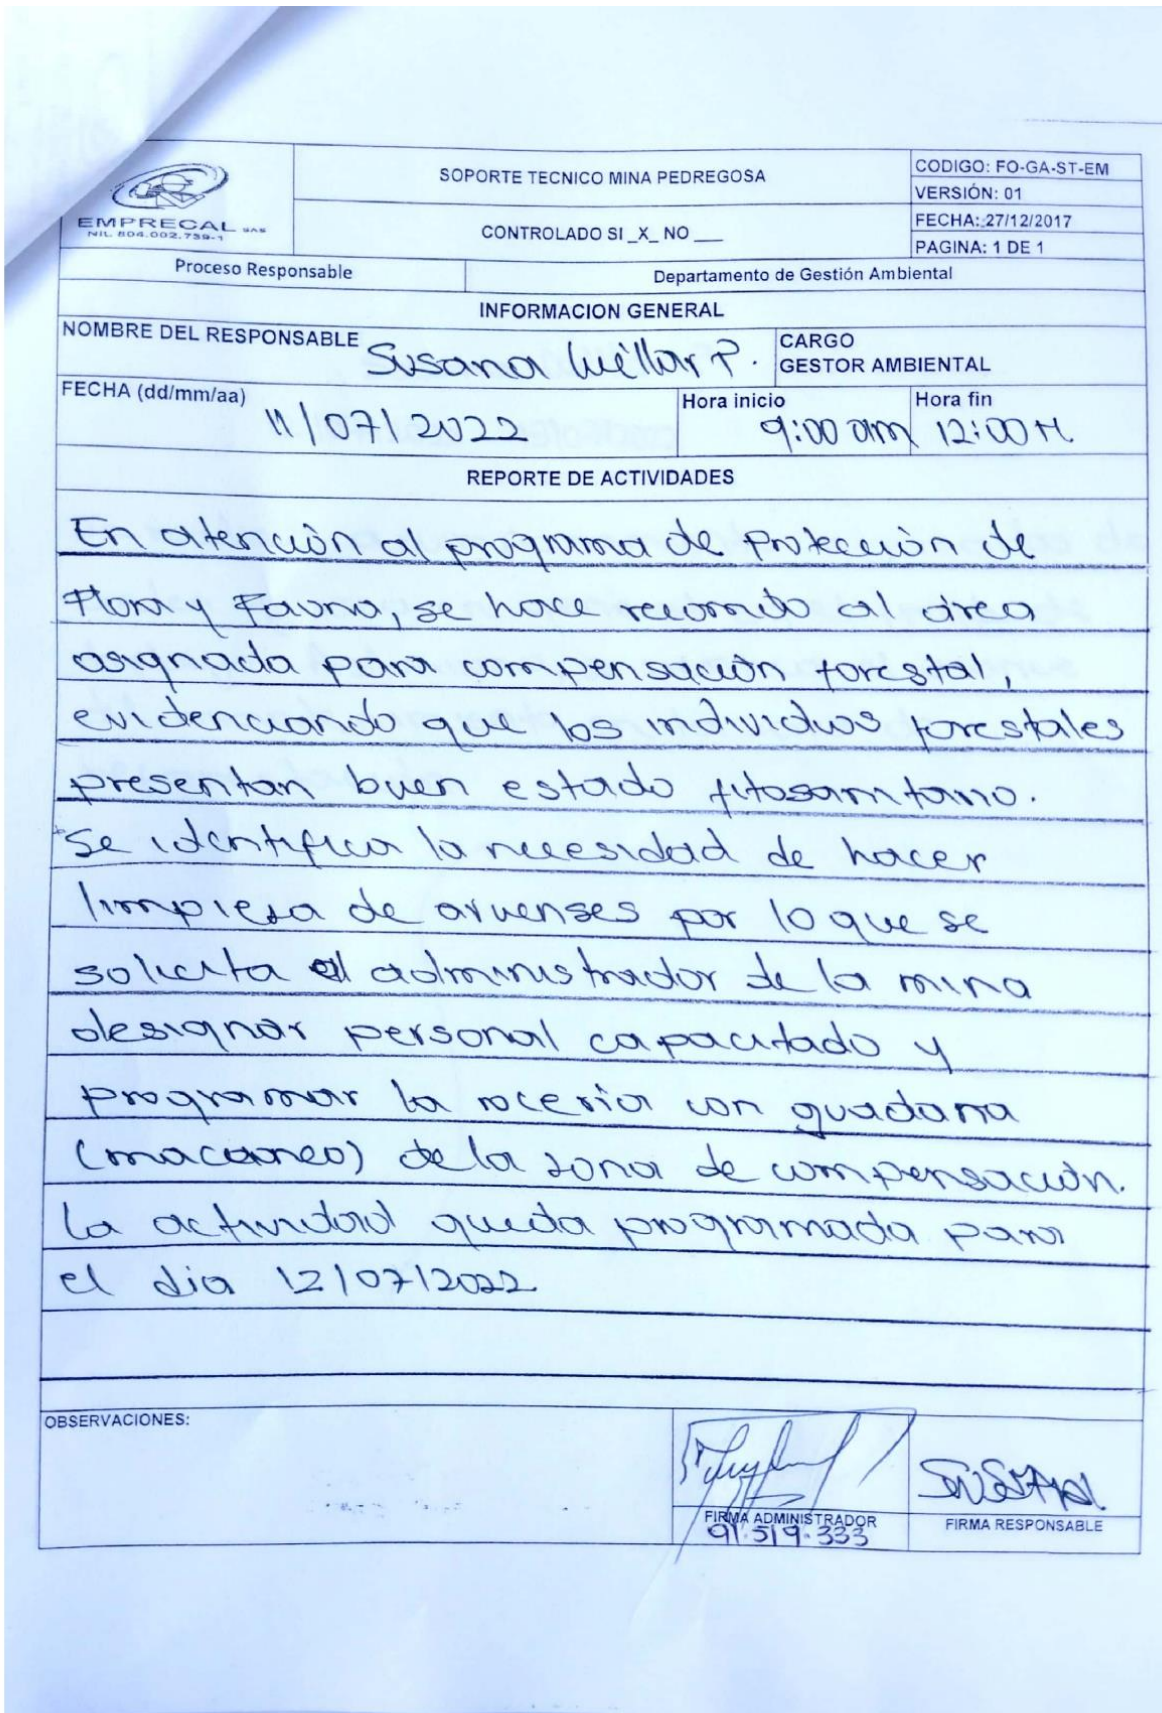 EMPRECAL SAS
NIL. 804.002.739-1
SOPORTE TECNICO MINA PEDREGOSA
CONTROLADO SI _X_ NO ___
CODIGO: FO-GA-ST-EM
VERSIÓN: 01
FECHA: 27/12/2017
PAGINA: 1 DE 1
Proceso Responsable
Departamento de Gestión Ambiental
INFORMACION GENERAL
NOMBRE DEL RESPONSABLE Susana P.
CARGO
GESTOR AMBIENTAL
FECHA (dd/mm/aa) 11/07/2022
Hora inicio 9:00 am
Hora fin 12:00 M.
REPORTE DE ACTIVIDADES
En atención al programa de Protección de
Flora y Fauna, se hace recorrido al área
asignada para compensación forestal,
evidenciando que los individuos forestales
presentan buen estado fitosanitario.
Se identifica la necesidad de hacer
limpieza de arvenses por lo que se
solicita al administrador de la mina
designar personal capacitado y
programar la rocería con guadaña
(macaneo) de la zona de compensación.
La actividad queda programada para
el dia 12/07/2022
OBSERVACIONES:
FIRMA ADMINISTRADOR
91.519.333
FIRMA RESPONSABLE